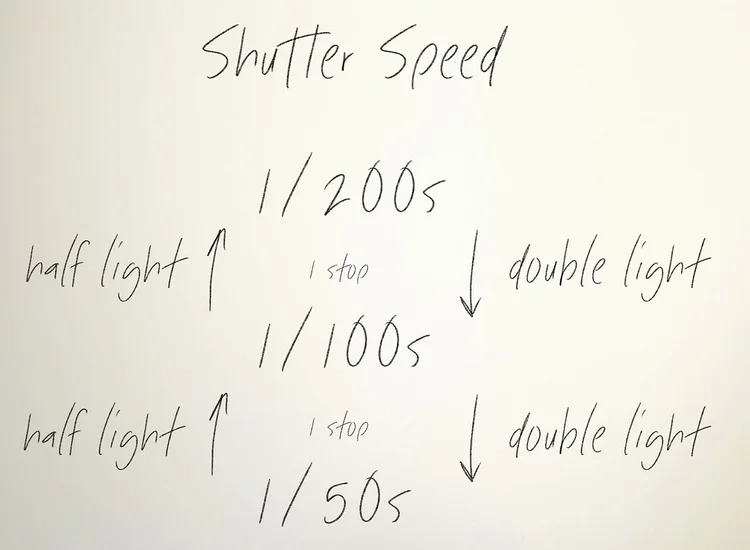 Shutter Speed
1/200s
half light 1 stop double light
1/100s
half light 1 stop double light
1/50s